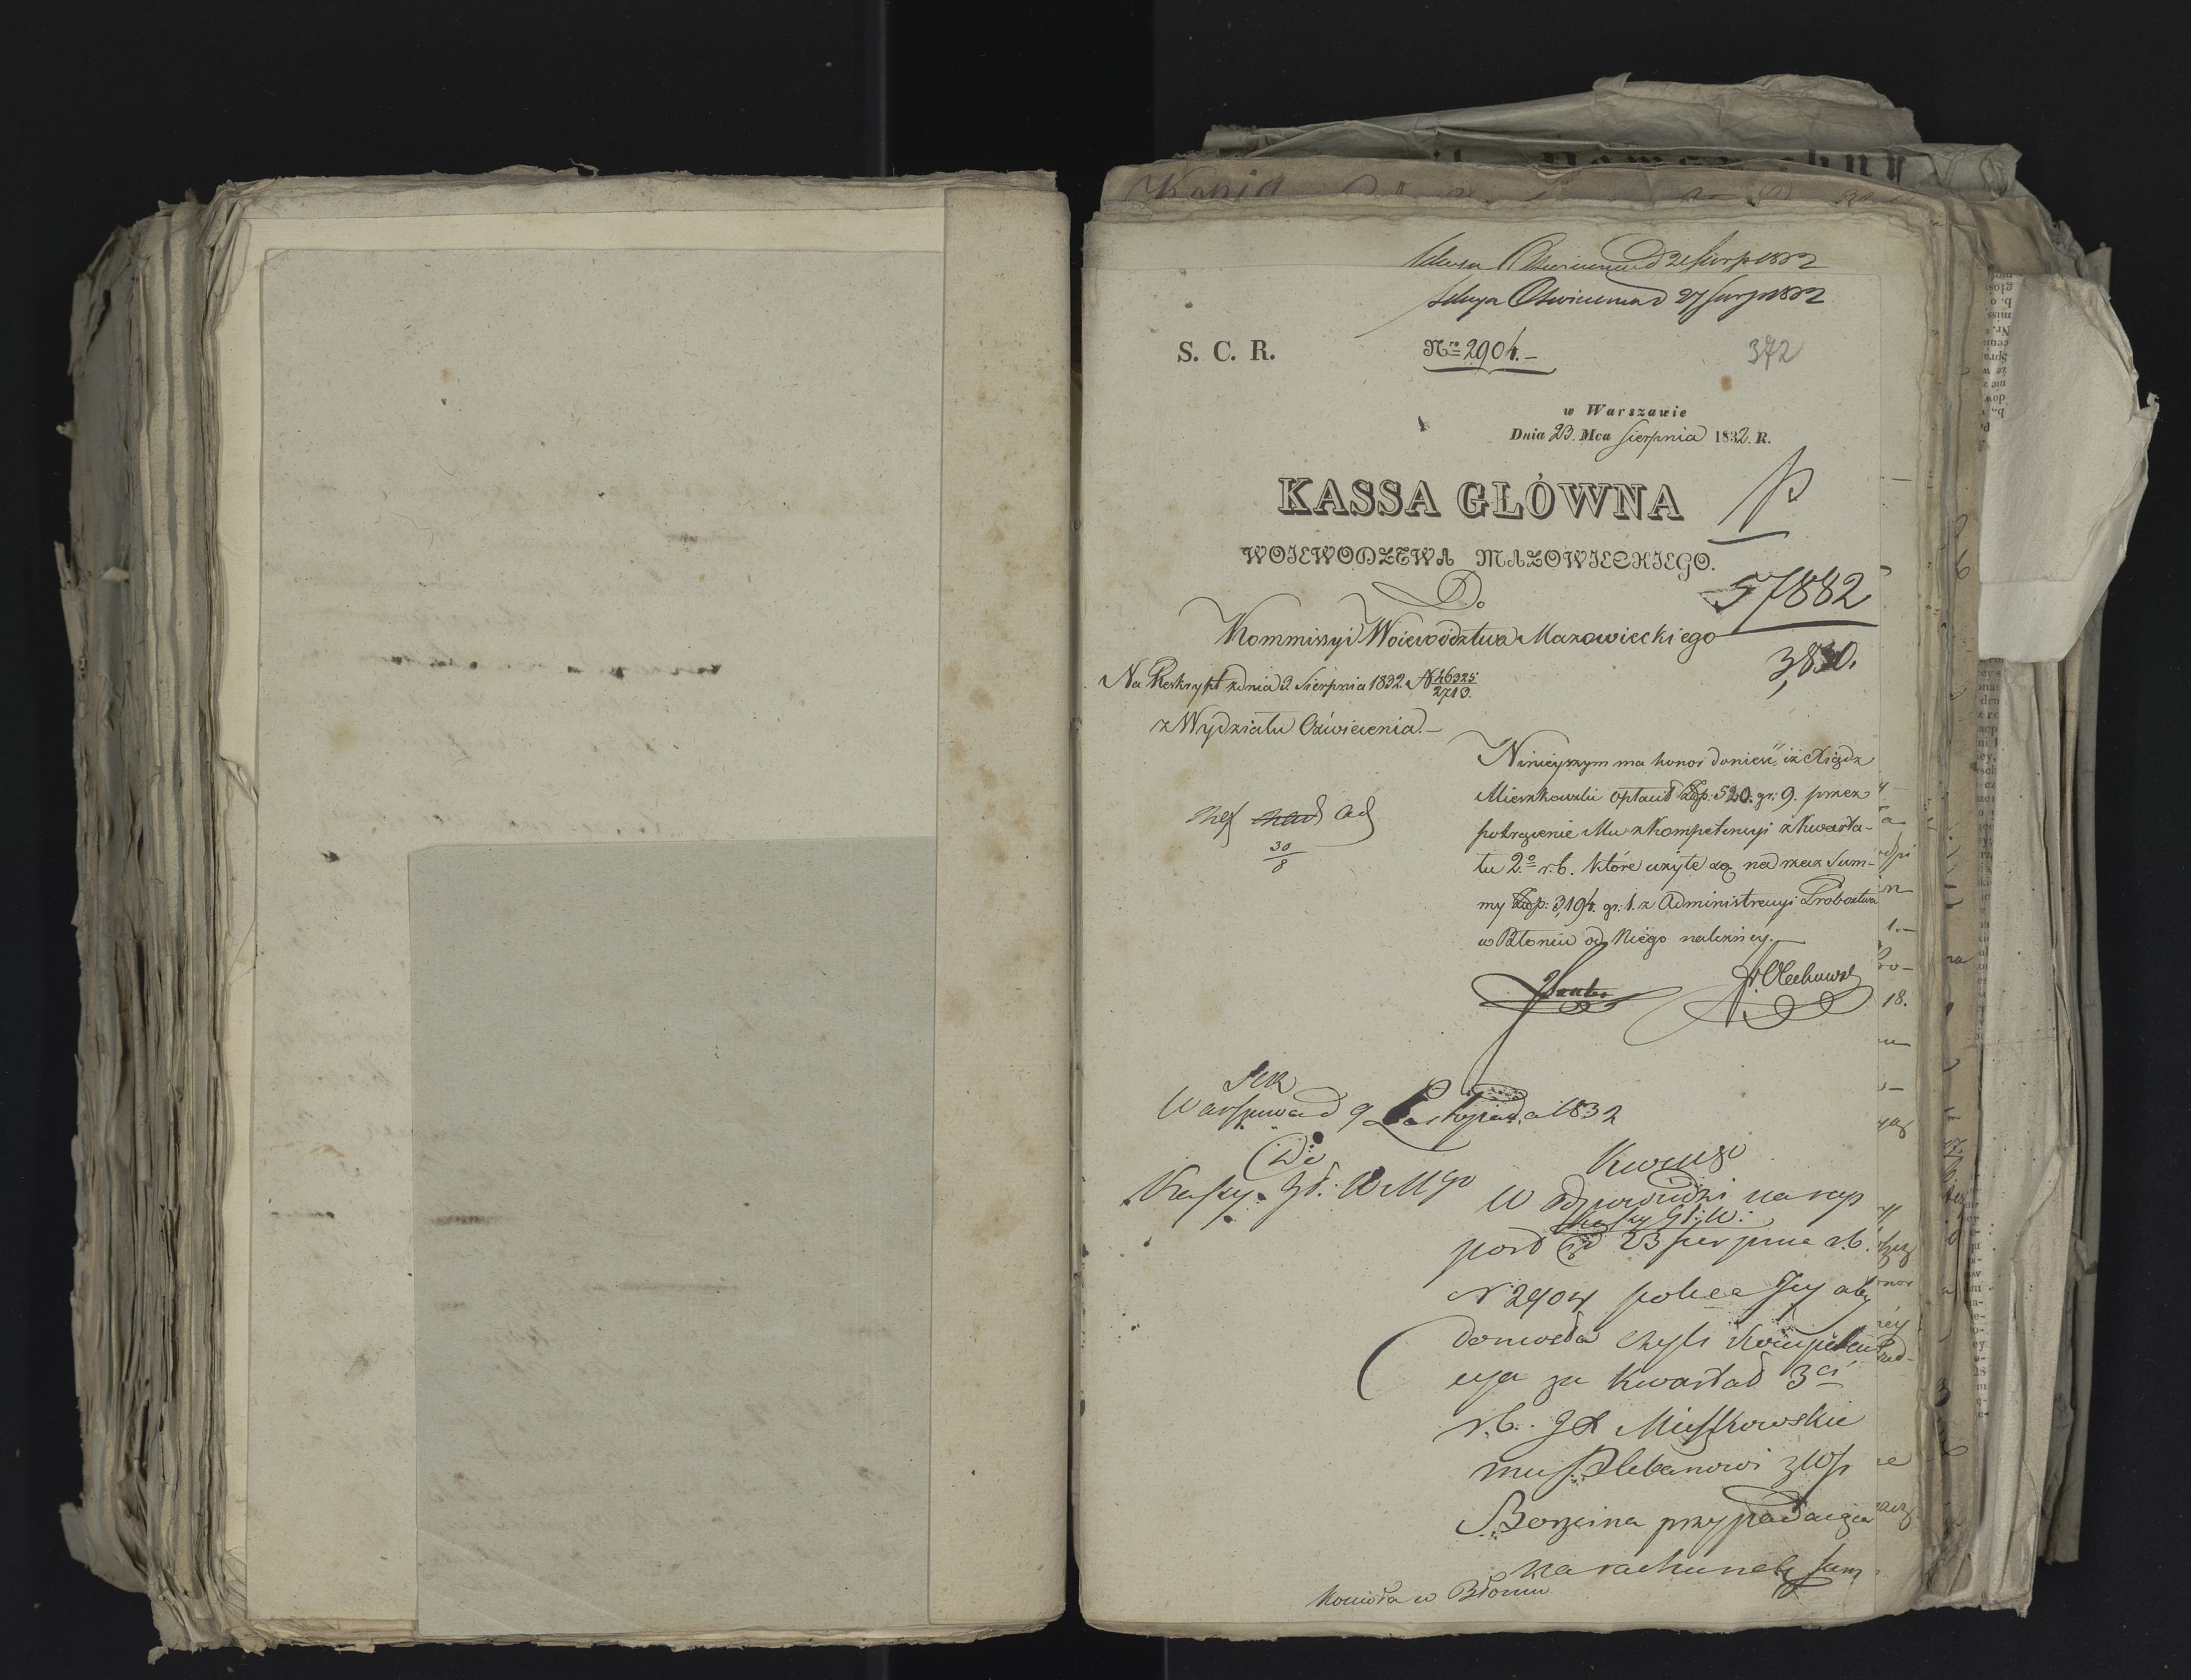 Sekcya Oświecenia d 21 sierp 1832
Sekcya Oświecenia d 27 sierp 1832
S. C. R.
Nro 2904.–
372
w Warszawie
Dnia 23. Mca Sierpnia 1832. R.
KASSA GŁÓWNA
WOIEWODZTWA MAZOWIECKIEGO.
Do
57882
Kommissyi Woiewództwa Mazowieckiego
3,830.
Na Reskrypt z dnia 2 Sierpnia 1832. N 46325/2713.
z Wydziału Oświecenia.–
Ninieyszym ma honor donieść, iż Xiądz
Mieszkowski opłacił Złp: 520. gr: 9. przez
potrącenie Mu z Kompetencyi z Kwarta-
łu 2.o r. b. które użyte są na rzecz Sum-
my Złp: 3,194. gr: 1. z Administracyi Probostwa
w Błoniu od Niego należney.–
30/8
Olechowski
SCR
Warszawa d 9 Listopada 1832
Do
Kassy Gł: W Mgo
W odpowiedzi na rap
Kassy Gł: W:
port z d 23 sierpnia r. b.
N 2904 poleca Jey aby
doniosła czyli kompeten
cya za kwartał 3ci
r. b. JX Mieszkowskie
mu Plebanowi z wsi
Borzęcina przypadaiąca
na rachunek sum
Kościoła w Błoniu